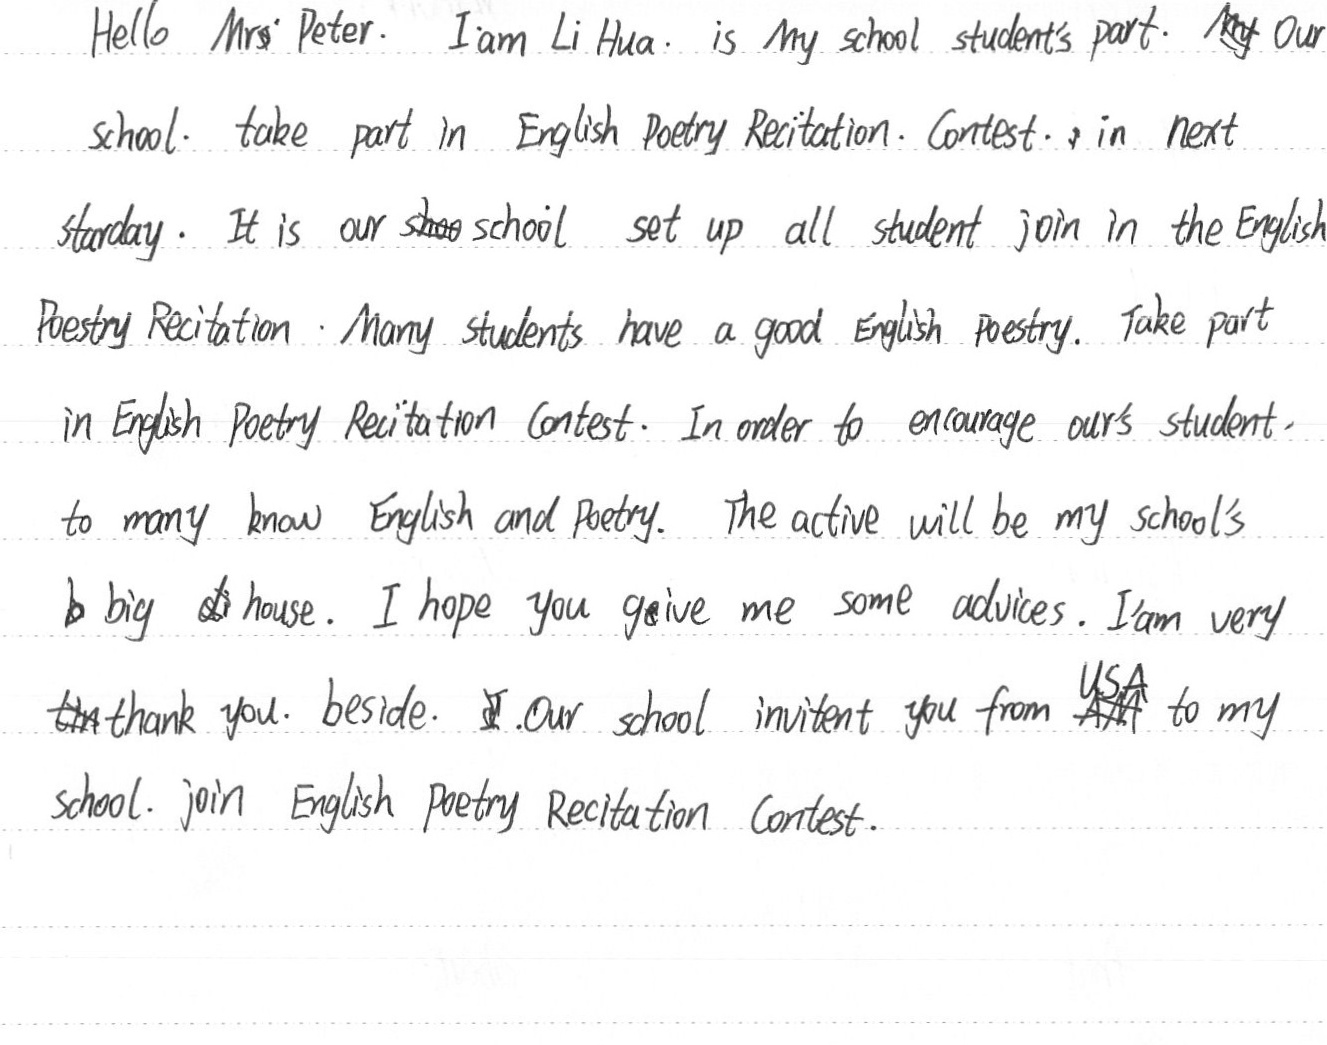 Hello Mrs Peter. I'am Li Hua. is My school student's part. Our
school. take part in English Poetry Recitation. Contest. , in next
starday. It is our school set up all student join in the English
Poestry Recitation. Many students have a good English Poestry. Take part
in English Poetry Recitation Contest. In order to encourage our's student.
to many know English and Poetry. The active will be my school's
big house. I hope you give me some advices. I'am very
thank you. beside. Our school invitent you from USA to my
school. join English Poetry Recitation Contest.